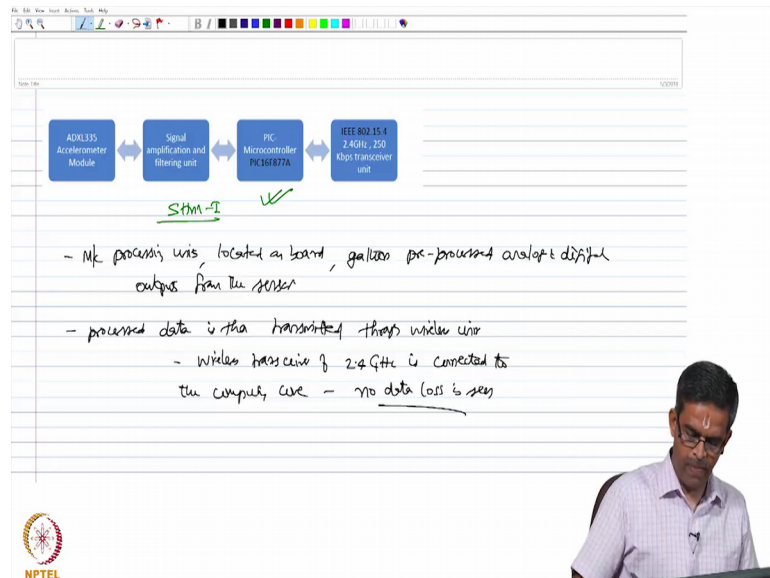 File Edit View Insert Actions Tools Help
B I
Note Title
ADXL335
Accelerometer
Module
Signal
amplification and
filtering unit
PIC-
Microcontroller
PIC16F877A
IEEE 802.15.4
2.4GHz , 250
Kbps transceiver
unit
SHM-I
- Mc processing unit, located on board, gathers pre-processed analog & digital
outputs from the sensor
- processed data is then transmitted through wireless unit
- wireless transceiver of 2.4 GHz is connected to
the computing core - no data loss is seen
NPTEL